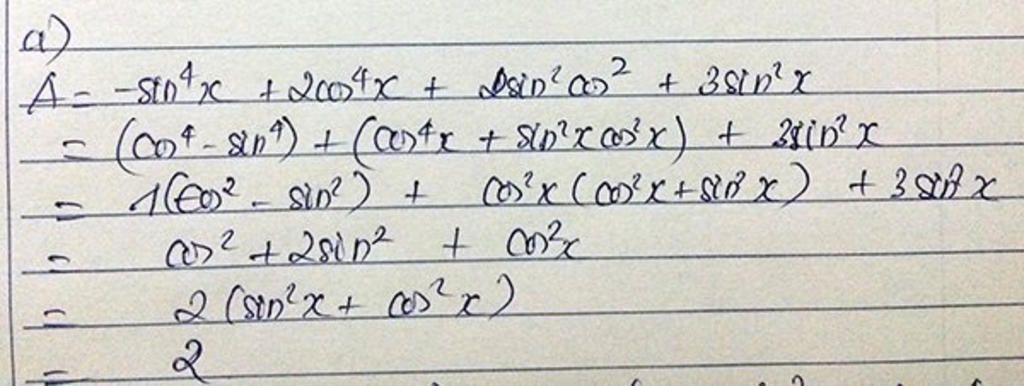 a)
A = -sin⁴x + 2cos⁴x + sin²cos² + 3sin²x
= (cos⁴ - sin⁴) + (cos⁴x + sin²xcos²x) + 3sin²x
= 1(cos² - sin²) + cos²x(cos²x + sin²x) + 3sin²x
= cos² + 2sin² + cos²x
= 2(sin²x + cos²x)
= 2